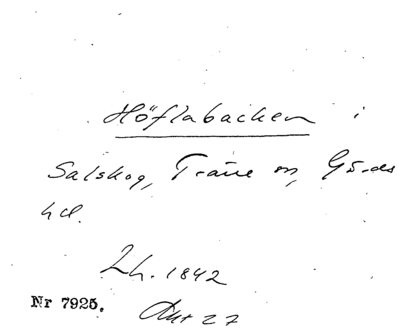 Höflabacken i
Salskog, Träne sn, Gärds
hd.
Lh. 1842
Nr 7925. Akt 27